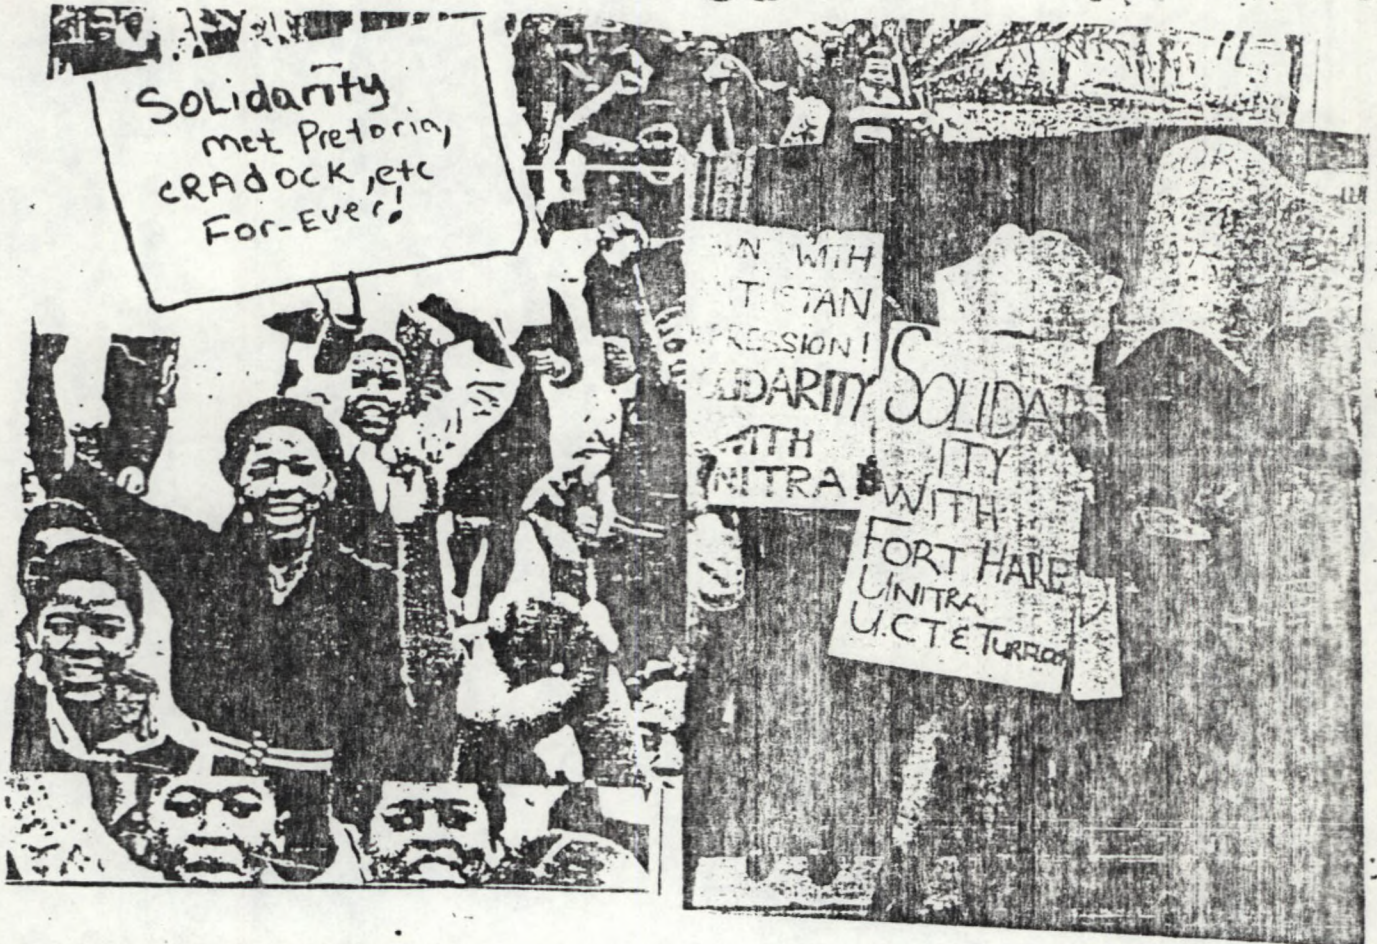 Solidarity
met Pretoria,
CRAdOCK, etc
For-Ever!
WN WITH
TUSTAN
PRESSION!
LIDARITY
WITH
NITRA
SOLIDAR
ITY
WITH
FORT HARE
UNITRA
U.C.T &